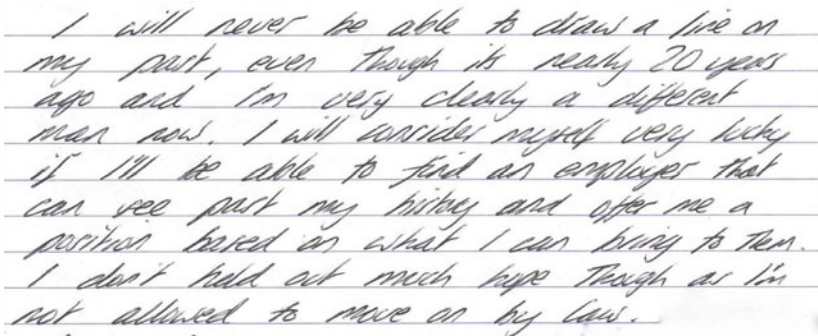 I will never be able to draw a line on
my past, even though its nearly 20 years
ago and I'm very clearly a different
man now. I will consider myself very lucky
if I'll be able to find an employer that
can see past my history and offer me a
position based on what I can bring to them.
I don't hold out much hope though as I'm
not allowed to move on by law.